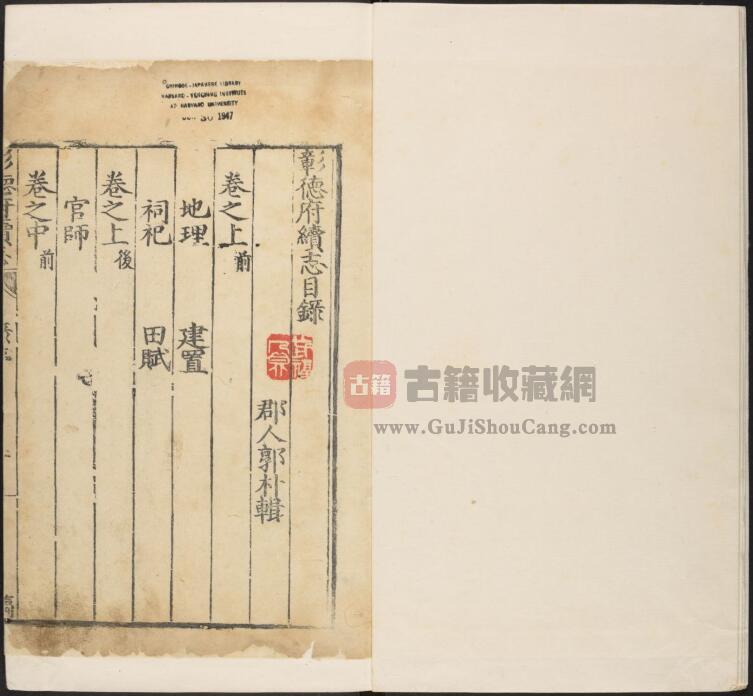 CHINESE-JAPANESE LIBRARY
HARVARD-YENCHING INSTITUTE
AT HARVARD UNIVERSITY
30 1947
彰德府續志目錄
郡人郭朴輯
卷之上前
地理 建置
祠祀 田賦
卷之上後
官師
卷之中前
古籍 古籍收藏網
www.GuJiShouCang.com